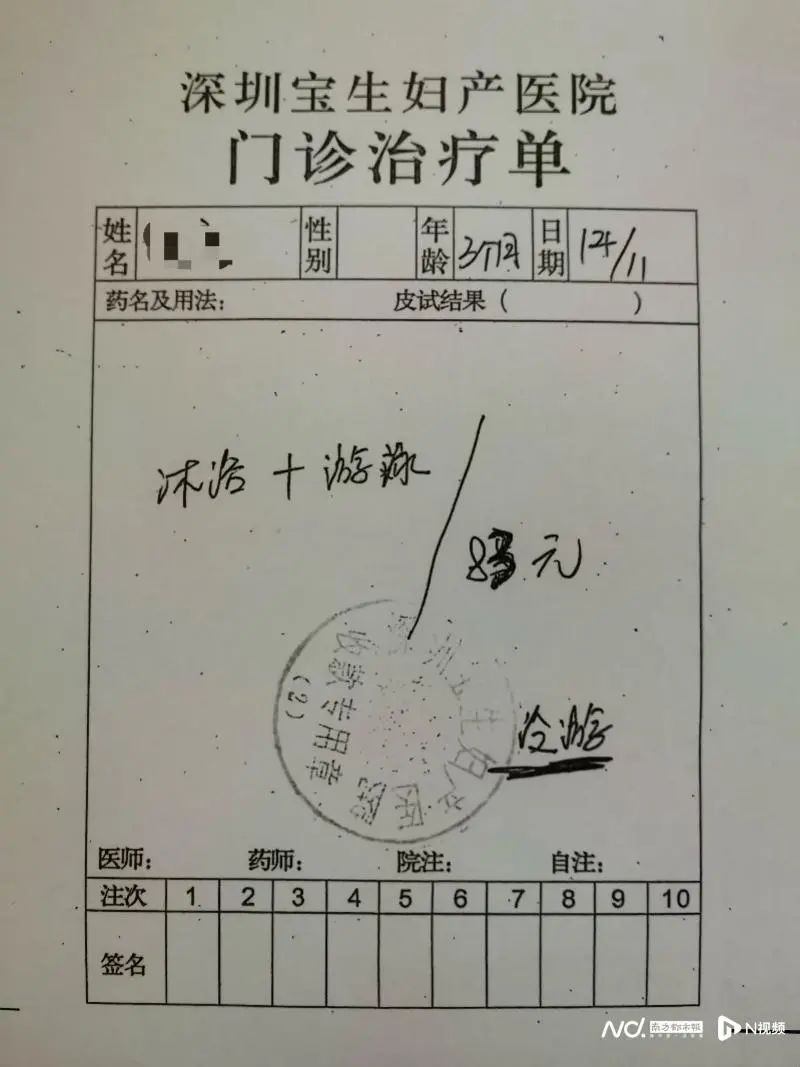 深圳宝生妇产医院
门诊治疗单
姓名 性别 年龄 3个月 日期 124/11
药名及用法: 皮试结果 ( )
沐浴 + 游泳
元
深圳宝生妇产医院
收款专用章
(2)
冷游
医师: 药师: 院注: 自注:
注次 1 2 3 4 5 6 7 8 9 10
签名
ND. 南方都市报 N视频